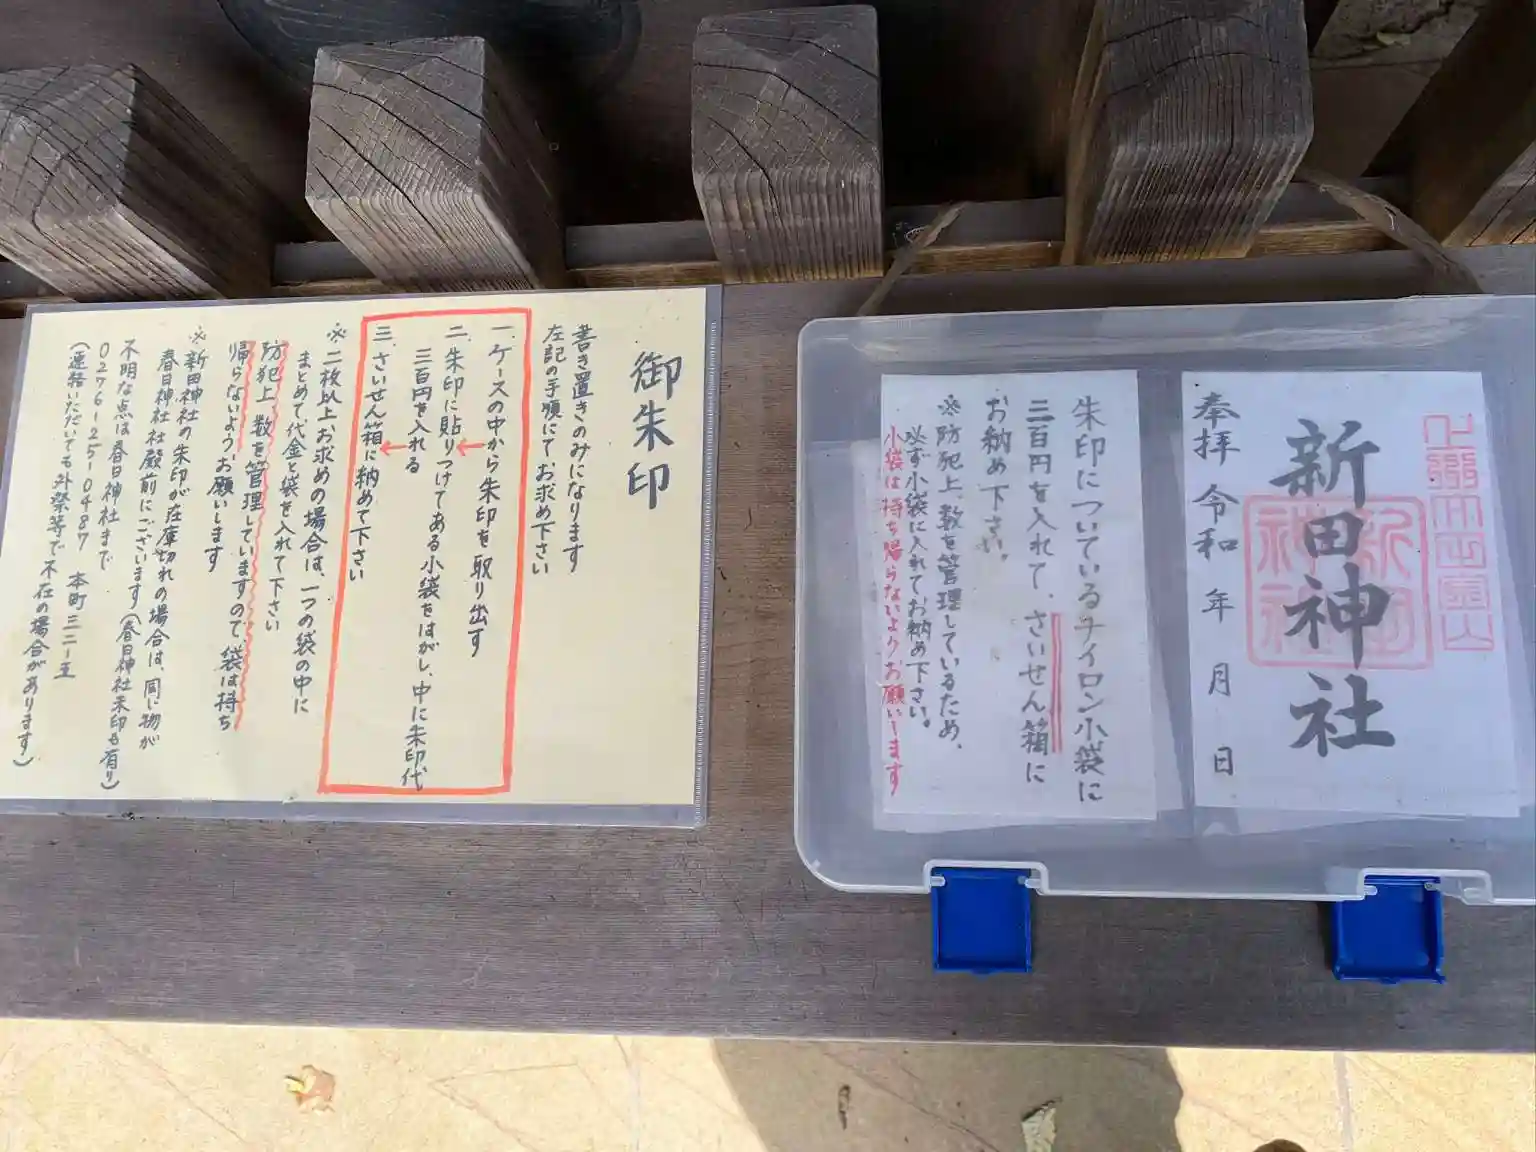 御朱印
書き置きのみになります
左記の手順にてお求め下さい
一、ケースの中から朱印を取り出す
二、朱印に貼りつけてある小袋をはがし、中に朱印代
三百円を入れる
三、さいせん箱に納めて下さい
※二枚以上お求めの場合は、一つの袋の中に
まとめて代金と袋を入れて下さい
防犯上、数を管理していますので、袋は持ち
帰らないよう、お願いします
※新田神社の朱印が在庫切れの場合は、同じ物が
春日神社社殿前にございます(春日神社朱印も有り)
不明な点は春日神社まで
0276-25-0487 本町三二-五
(連絡いただいても外祭等で不在の場合があります)
奉拝 令和 年 月 日
新田神社
新田神社
朱印についているナイロン小袋に
三百円を入れて、さいせん箱に
お納め下さい。
※防犯上、数を管理しているため、
必ず小袋に入れてお納め下さい。
小袋は持ち帰らないようお願いします